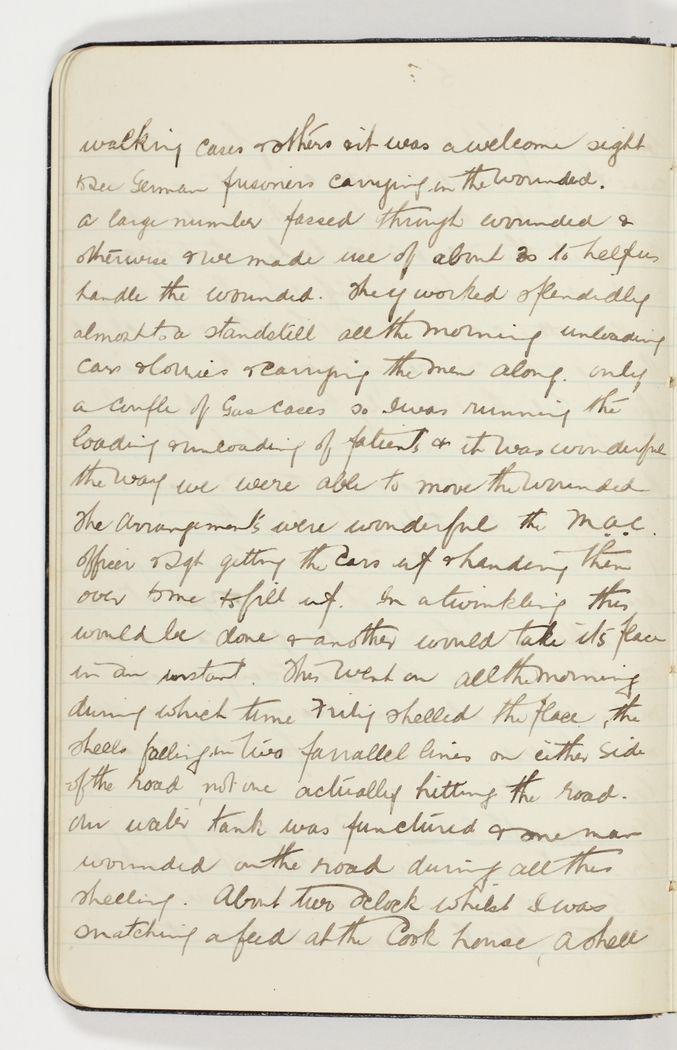 walking cases & others & it was a welcome sight
to see German prisoners carrying in the wounded.
a large number passed through wounded &
otherwise & we made use of about 20 to help us
handle the wounded. They worked splendidly
almost to a standstill all the morning unloading
cars & lorries & carrying the men along. only
a couple of Gas cases so I was running the
loading & unloading of patients & it was wonderful
the way we were able to move the wounded
The arrangements were wonderful the M.A.C.
officer & Sgt getting the cars up & handing them
over to me to fill up. In a twinkling this
would be done & another would take its place
in an instant. This went on all the morning
during which time Fritz shelled the place, the
shells falling in two parrallel lines on either side
of the road, not one actually hitting the road.
Our water tank was punctured & one man
wounded on the road during all this
shelling. About two o'clock whilst I was
snatching a feed at the Cook house, a shell